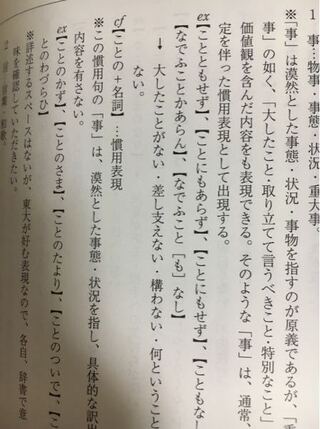 1 事…物事・事態・状況・重大事。
※「事」は漠然とした事態・状況・事物を指すのが原義であるが、「重
事」の如く、「大したこと・取り立てて言うべきこと・特別なこと」
価値観を含んだ内容をも表現できる。そのような「事」は、通常、
定を伴った慣用表現として出現する。
ex【こともせず】、【ことにもあらず】、【ことにもせず】、【こともな
【なでふことかあらん】、【なでふこと[も]なし】
→ 大したことがない・差し支えない・構わない・何ということ
ない。
cf【ことの+名詞】…慣用表現
※この慣用句の「事」は、漠然とした事態・状況を指し、具体的な訳出
内容を有さない。
ex【ことのかず】、【ことのさま】、【ことのたより】、【ことのついで】、【こ
とのわづらひ】
※詳述するスペースはないが、東大が好む表現なので、各自、辞書で意
味を確認していただきたい。